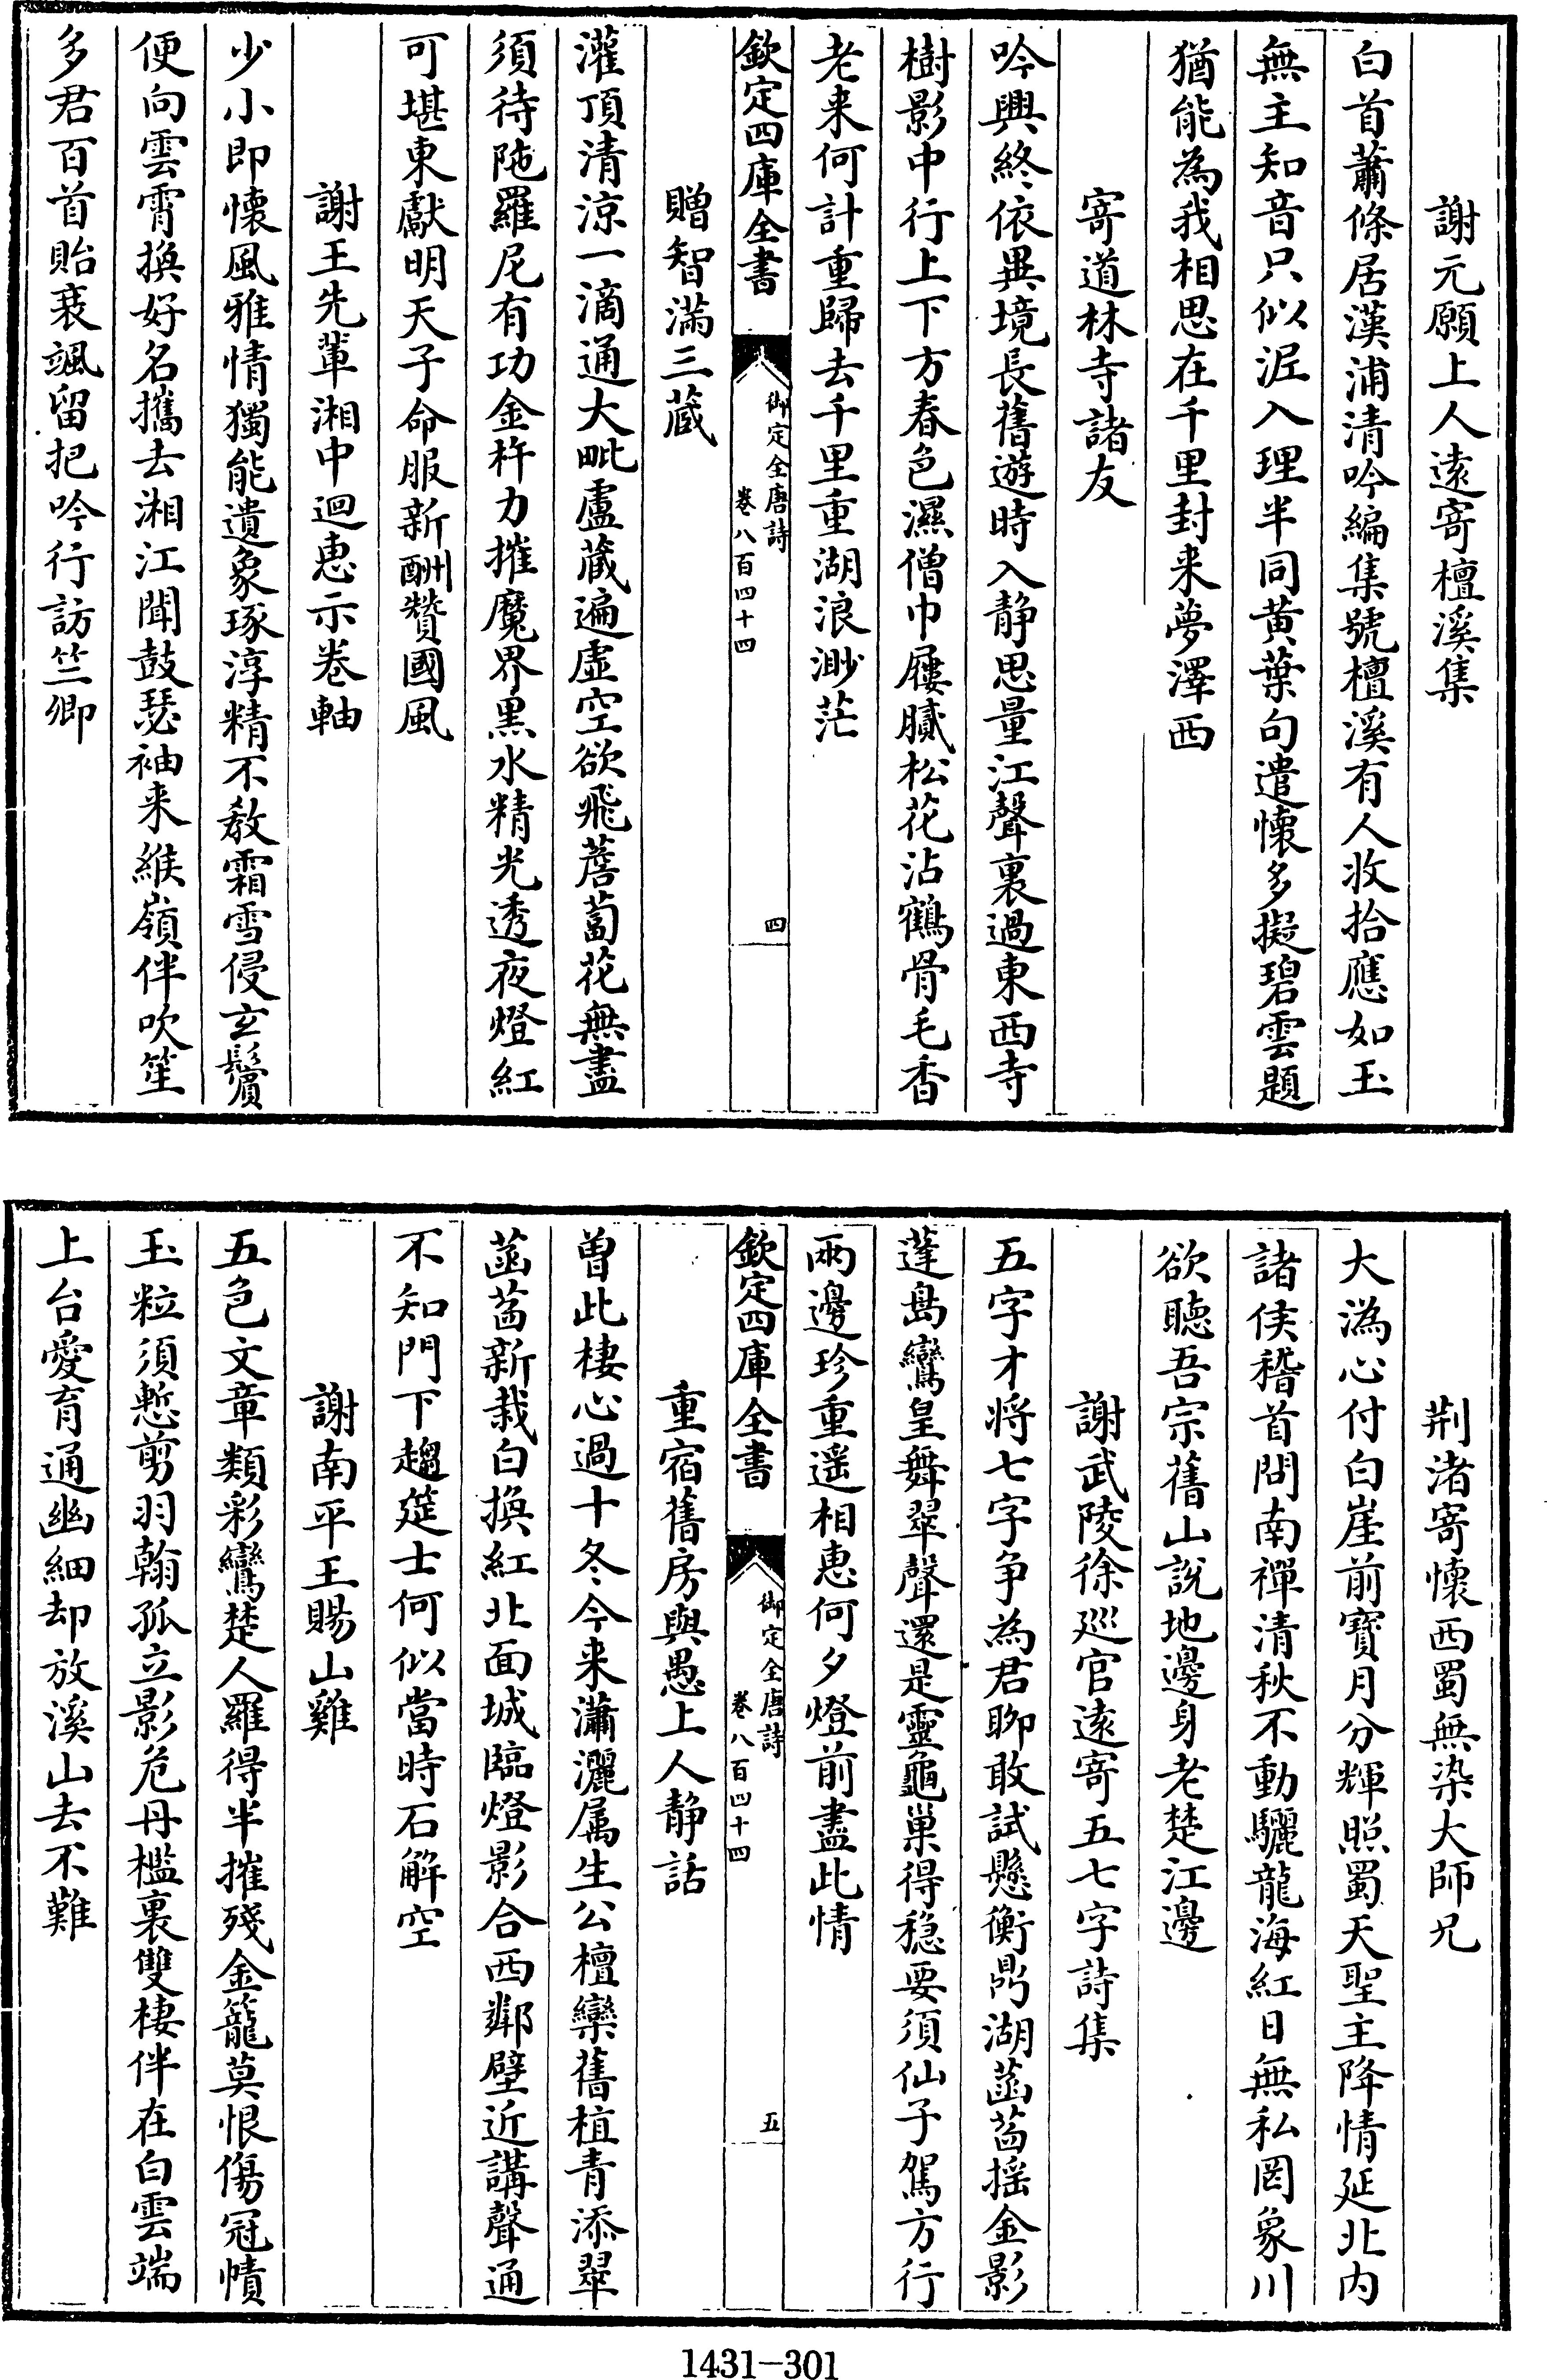 謝元願上人遠寄檀溪集
白首蕭條居漢浦清吟編集號檀溪有人收拾應如玉
無主知音只似泥入理半同黄葉句遣懷多擬碧雲題
猶能為我相思在千里封来夢澤西
寄道林寺諸友
吟興終依異境長舊遊時入静思量江聲裏過東西寺
樹影中行上下方春色濕僧巾屨膩松花沾鶴骨毛香
老来何計重歸去千里重湖浪渺茫
欽定四庫全書
御定全唐詩
卷八百四十四
四
贈智滿三藏
灌頂清涼一滴通大毗盧藏遍虛空欲飛薝蔔花無盡
須待陁羅尼有功金杵力摧魔界黑水精光透夜燈紅
可堪東獻明天子命服新酬贊國風
謝王先輩湘中迴惠示卷軸
少小即懷風雅情獨能遺象琢淳精不教霜雪侵玄鬢
便向雲霄換好名攜去湘江聞鼓瑟袖来緱嶺伴吹笙
多君百首貽衰颯留把吟行訪竺卿
荆渚寄懷西蜀無染大師兄
大溈心付白崖前寶月分輝照蜀天聖主降情延北内
諸侯稽首問南禪清秋不動驪龍海紅日無私罔象川
欲聽吾宗舊山說地邊身老楚江邊
謝武陵徐巡官遠寄五七字詩集
五字才将七字争為君聊敢試懸衡鼎湖菡萏摇金影
蓬島鸞皇舞翠聲還是靈龜巢得穏要須仙子駕方行
兩邊珍重遥相惠何夕燈前盡此情
欽定四庫全書
御定全唐詩
卷八百四十四
五
重宿舊房與愚上人静話
曽此棲心過十冬今来瀟灑属生公檀欒舊植青添翠
菡萏新栽白換紅北面城臨燈影合西鄰壁近講聲通
不知門下趨筵士何似當時石解空
謝南平王賜山雞
五色文章類彩鸞楚人羅得半摧殘金籠莫恨傷冠幘
玉粒須慙剪羽翰孤立影危丹檻裏雙棲伴在白雲端
上台愛育通幽細却放溪山去不難
1431-301